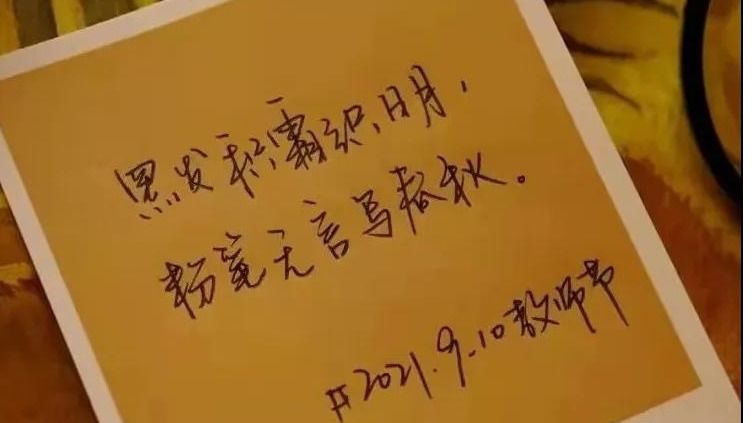 黑发积霜识日月，
粉笔无言写春秋。
#2021.9.10教师节